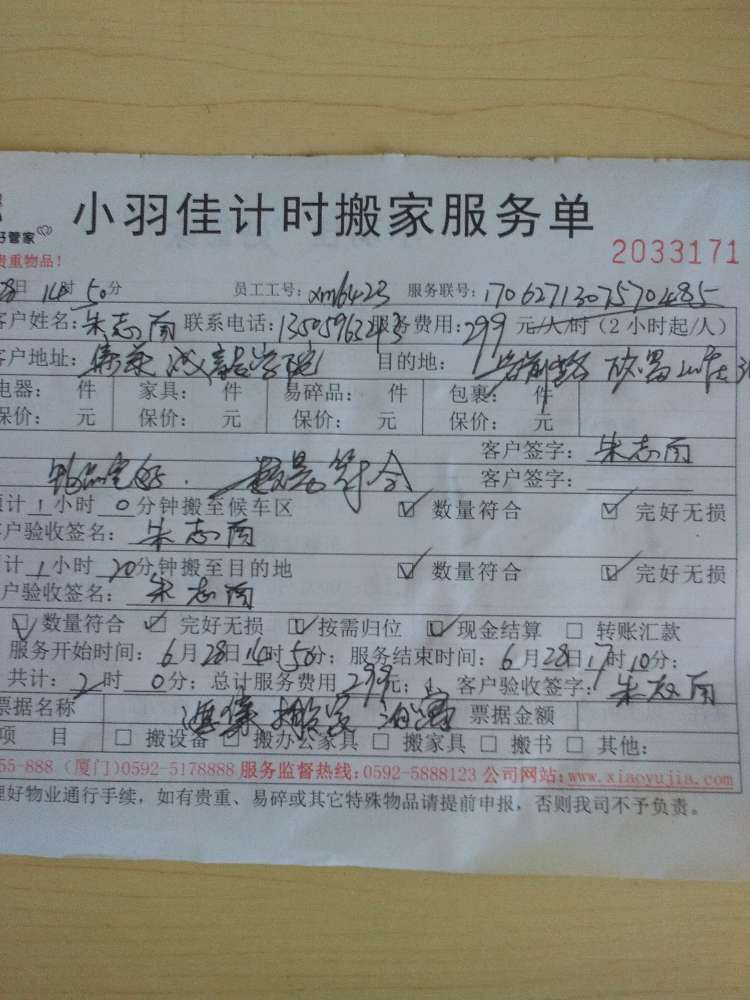 小羽佳计时搬家服务单
好管家
2033171
贵重物品!
28日 14时 50分 员工工号: xm6423 服务联号: 170627130757 0485
客户姓名: 朱志雨 联系电话: 13505963243 服务费用: 299 元/人/时(2小时起/人)
客户地址: 集美 诚毅学院 目的地:
电器: 件 家具: 件 易碎品: 件 包裹: 件
保价: 元 保价: 元 保价: 元 保价: 元
客户签字: 朱志雨
物品完好. 数量符合 客户签字:
预计 1 小时 0 分钟搬至候车区 数量符合 完好无损
客户验收签名: 朱志雨
预计 1 小时 20 分钟搬至目的地 数量符合 完好无损
客户验收签名: 朱志雨
数量符合 完好无损 按需归位 现金结算 转账汇款
服务开始时间: 6月28日14时50分; 服务结束时间: 6月28日17时10分;
共计: 2时 0分; 总计服务费用 299 元; 客户验收签字: 朱志雨
票据名称 搬家 票据金额
项 目 搬设备 搬办公家具 搬家具 搬书 其他:
55-888 (厦门)0592-5178888 服务监督热线:0592-5888123 公司网站:www.xiaoyujia.com
理好物业通行手续,如有贵重、易碎或其它特殊物品请提前申报,否则我司不予负责。